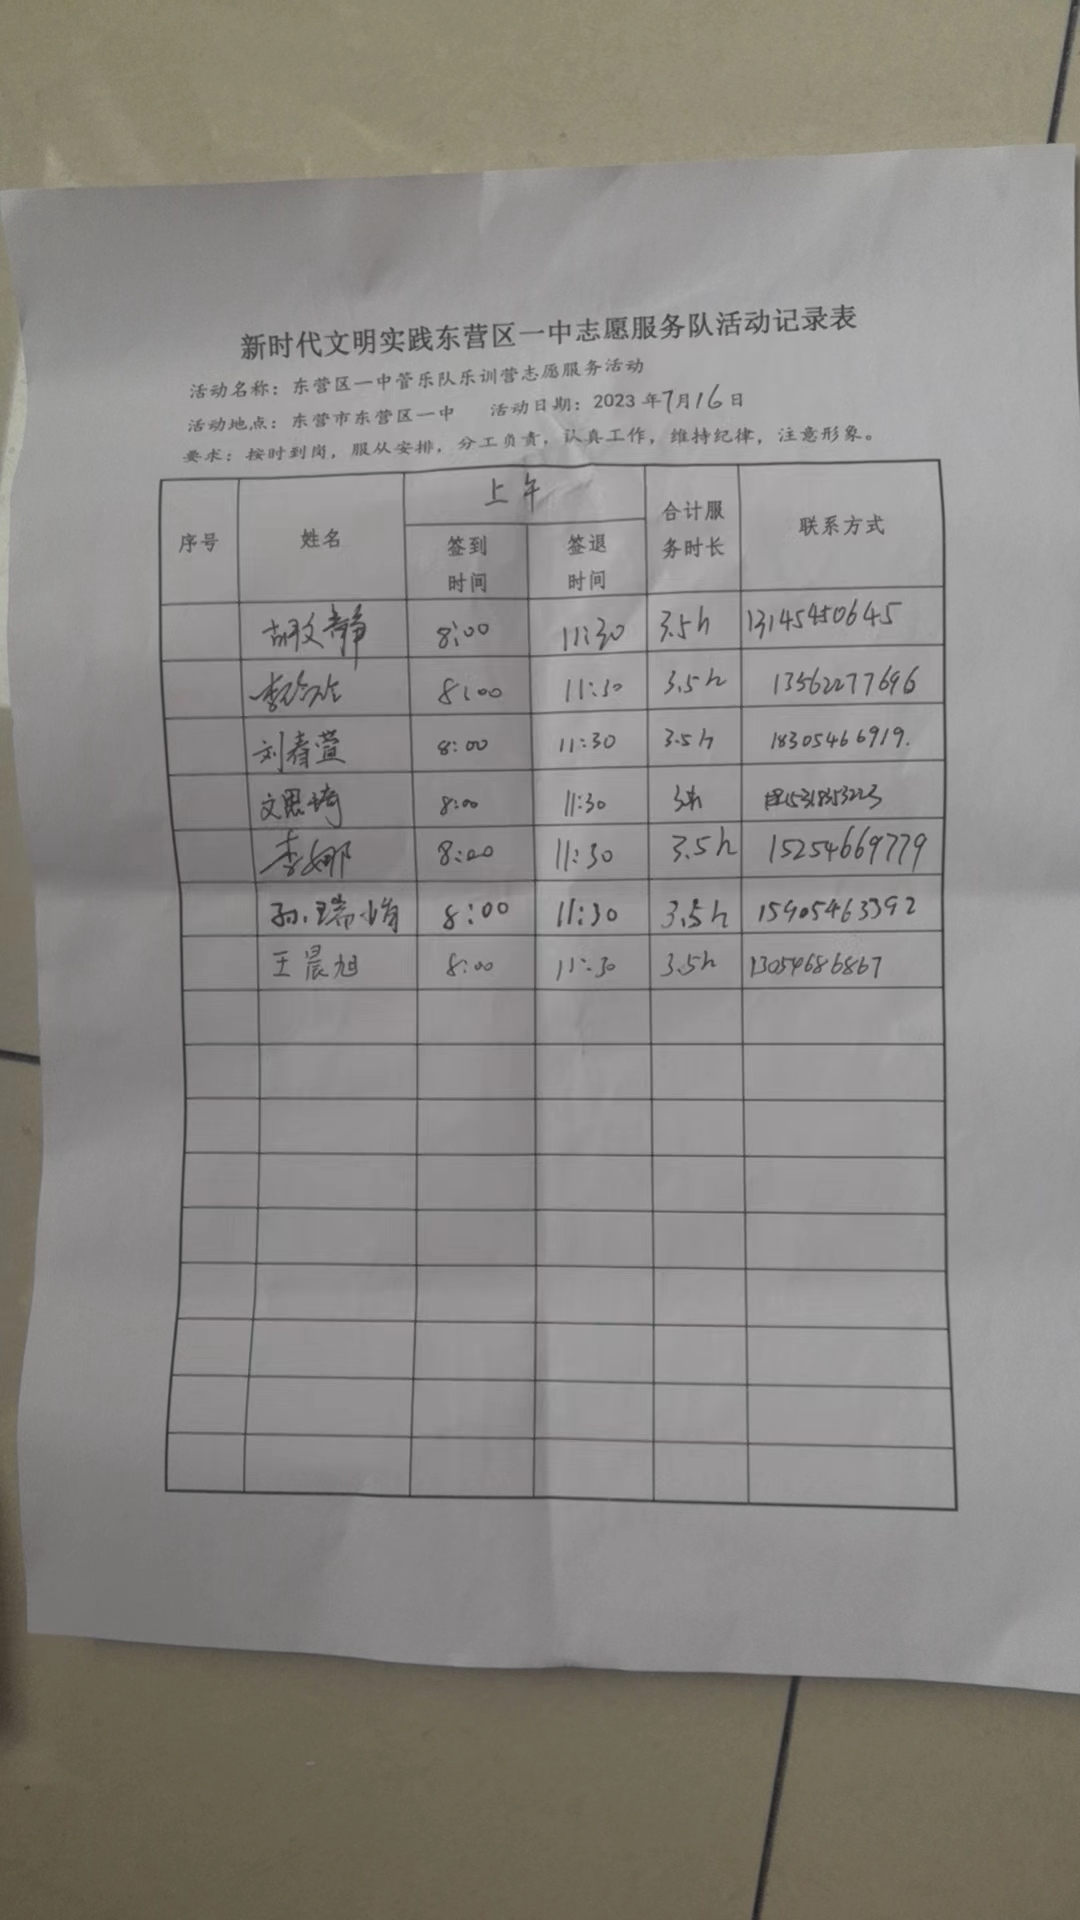 新时代文明实践东营区一中志愿服务队活动记录表
活动名称：东营区一中管乐队乐训营志愿服务活动
活动地点：东营市东营区一中 活动日期：2023年7月16日
要求：按时到岗，服从安排，分工负责，认真工作，维持纪律，注意形象。
序号 姓名 上午 合计服务时长 联系方式
签到时间 签退时间
胡文静 8:00 11:30 3.5h 13145450645
8:00 11:30 3.5h 13562277696
刘春萱 8:00 11:30 3.5h 18305466919.
文思琦 8:00 11:30 15318353223
李娜 8:00 11:30 3.5h 15254669779
孙瑞 8:00 11:30 3.5h 15905463392
王晨旭 8:00 11:30 3.5h 13054686867